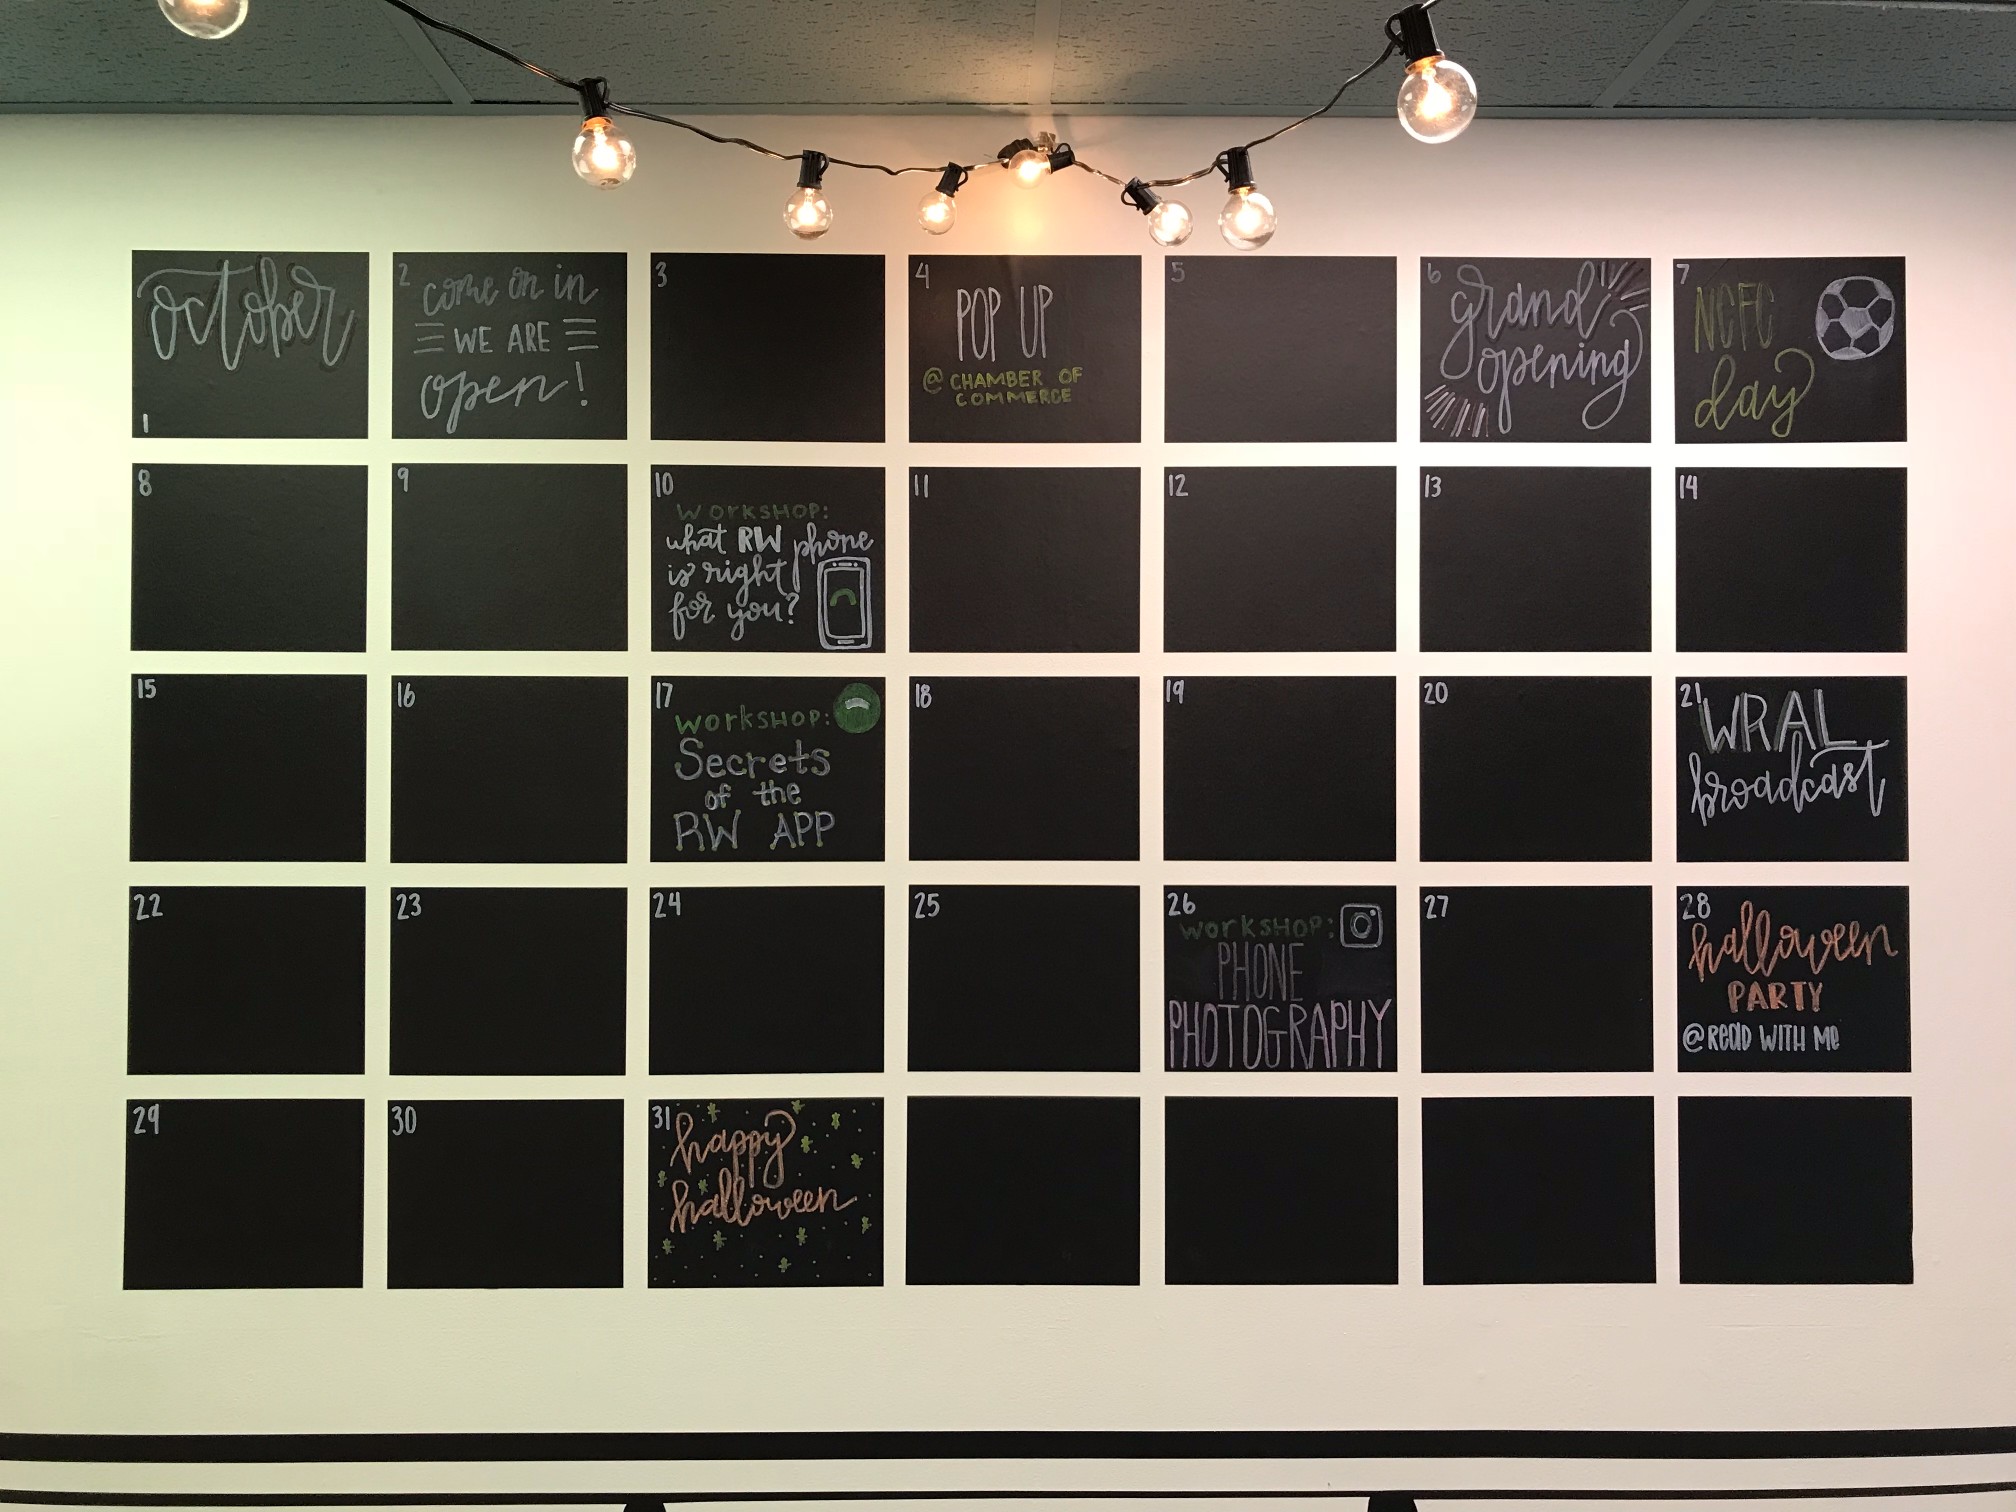 october
1
2
come on in
WE ARE
open!
3
4
POP UP
@ CHAMBER OF
COMMERCE
5
6
grand
opening
7
NCFC
day
8
9
10
WORKSHOP:
what RW phone
is right
for you?
11
12
13
14
15
16
17
WORKSHOP:
Secrets
of the
RW APP
18
19
20
21
WRAL
broadcast
22
23
24
25
26
WORKSHOP:
PHONE
PHOTOGRAPHY
27
28
halloween
PARTY
@READ WITH ME
29
30
31
happy
halloween